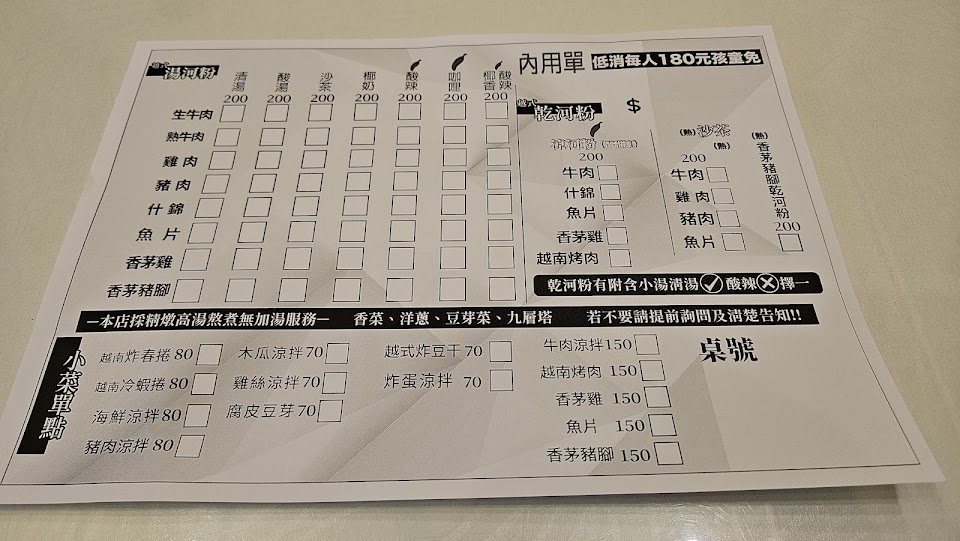 內用單 低消每人180元孩童免
越式 湯河粉
清湯 酸湯 沙茶 椰奶 酸辣 咖哩 椰香酸辣
200 200 200 200 200 200 200
生牛肉
熟牛肉
雞肉
豬肉
什錦
魚片
香茅雞
香茅豬腳
越式 乾河粉 $
涼河粉
200
牛肉
什錦
魚片
香茅雞
越南烤肉
(熱)沙茶(熱)
200
牛肉
雞肉
豬肉
魚片
(熱)香茅豬腳乾河粉
200
乾河粉有附含小湯清湯✓酸辣✕擇一
—本店採精燉高湯熬煮無加湯服務— 香菜、洋蔥、豆芽菜、九層塔 若不要請提前詢問及清楚告知!!
小菜單點
越南炸春捲 80
越南冷蝦捲 80
海鮮涼拌 80
豬肉涼拌 80
木瓜涼拌 70
雞絲涼拌 70
腐皮豆芽 70
越式炸豆干 70
炸蛋涼拌 70
牛肉涼拌 150
越南烤肉 150
香茅雞 150
魚片 150
香茅豬腳 150
桌號